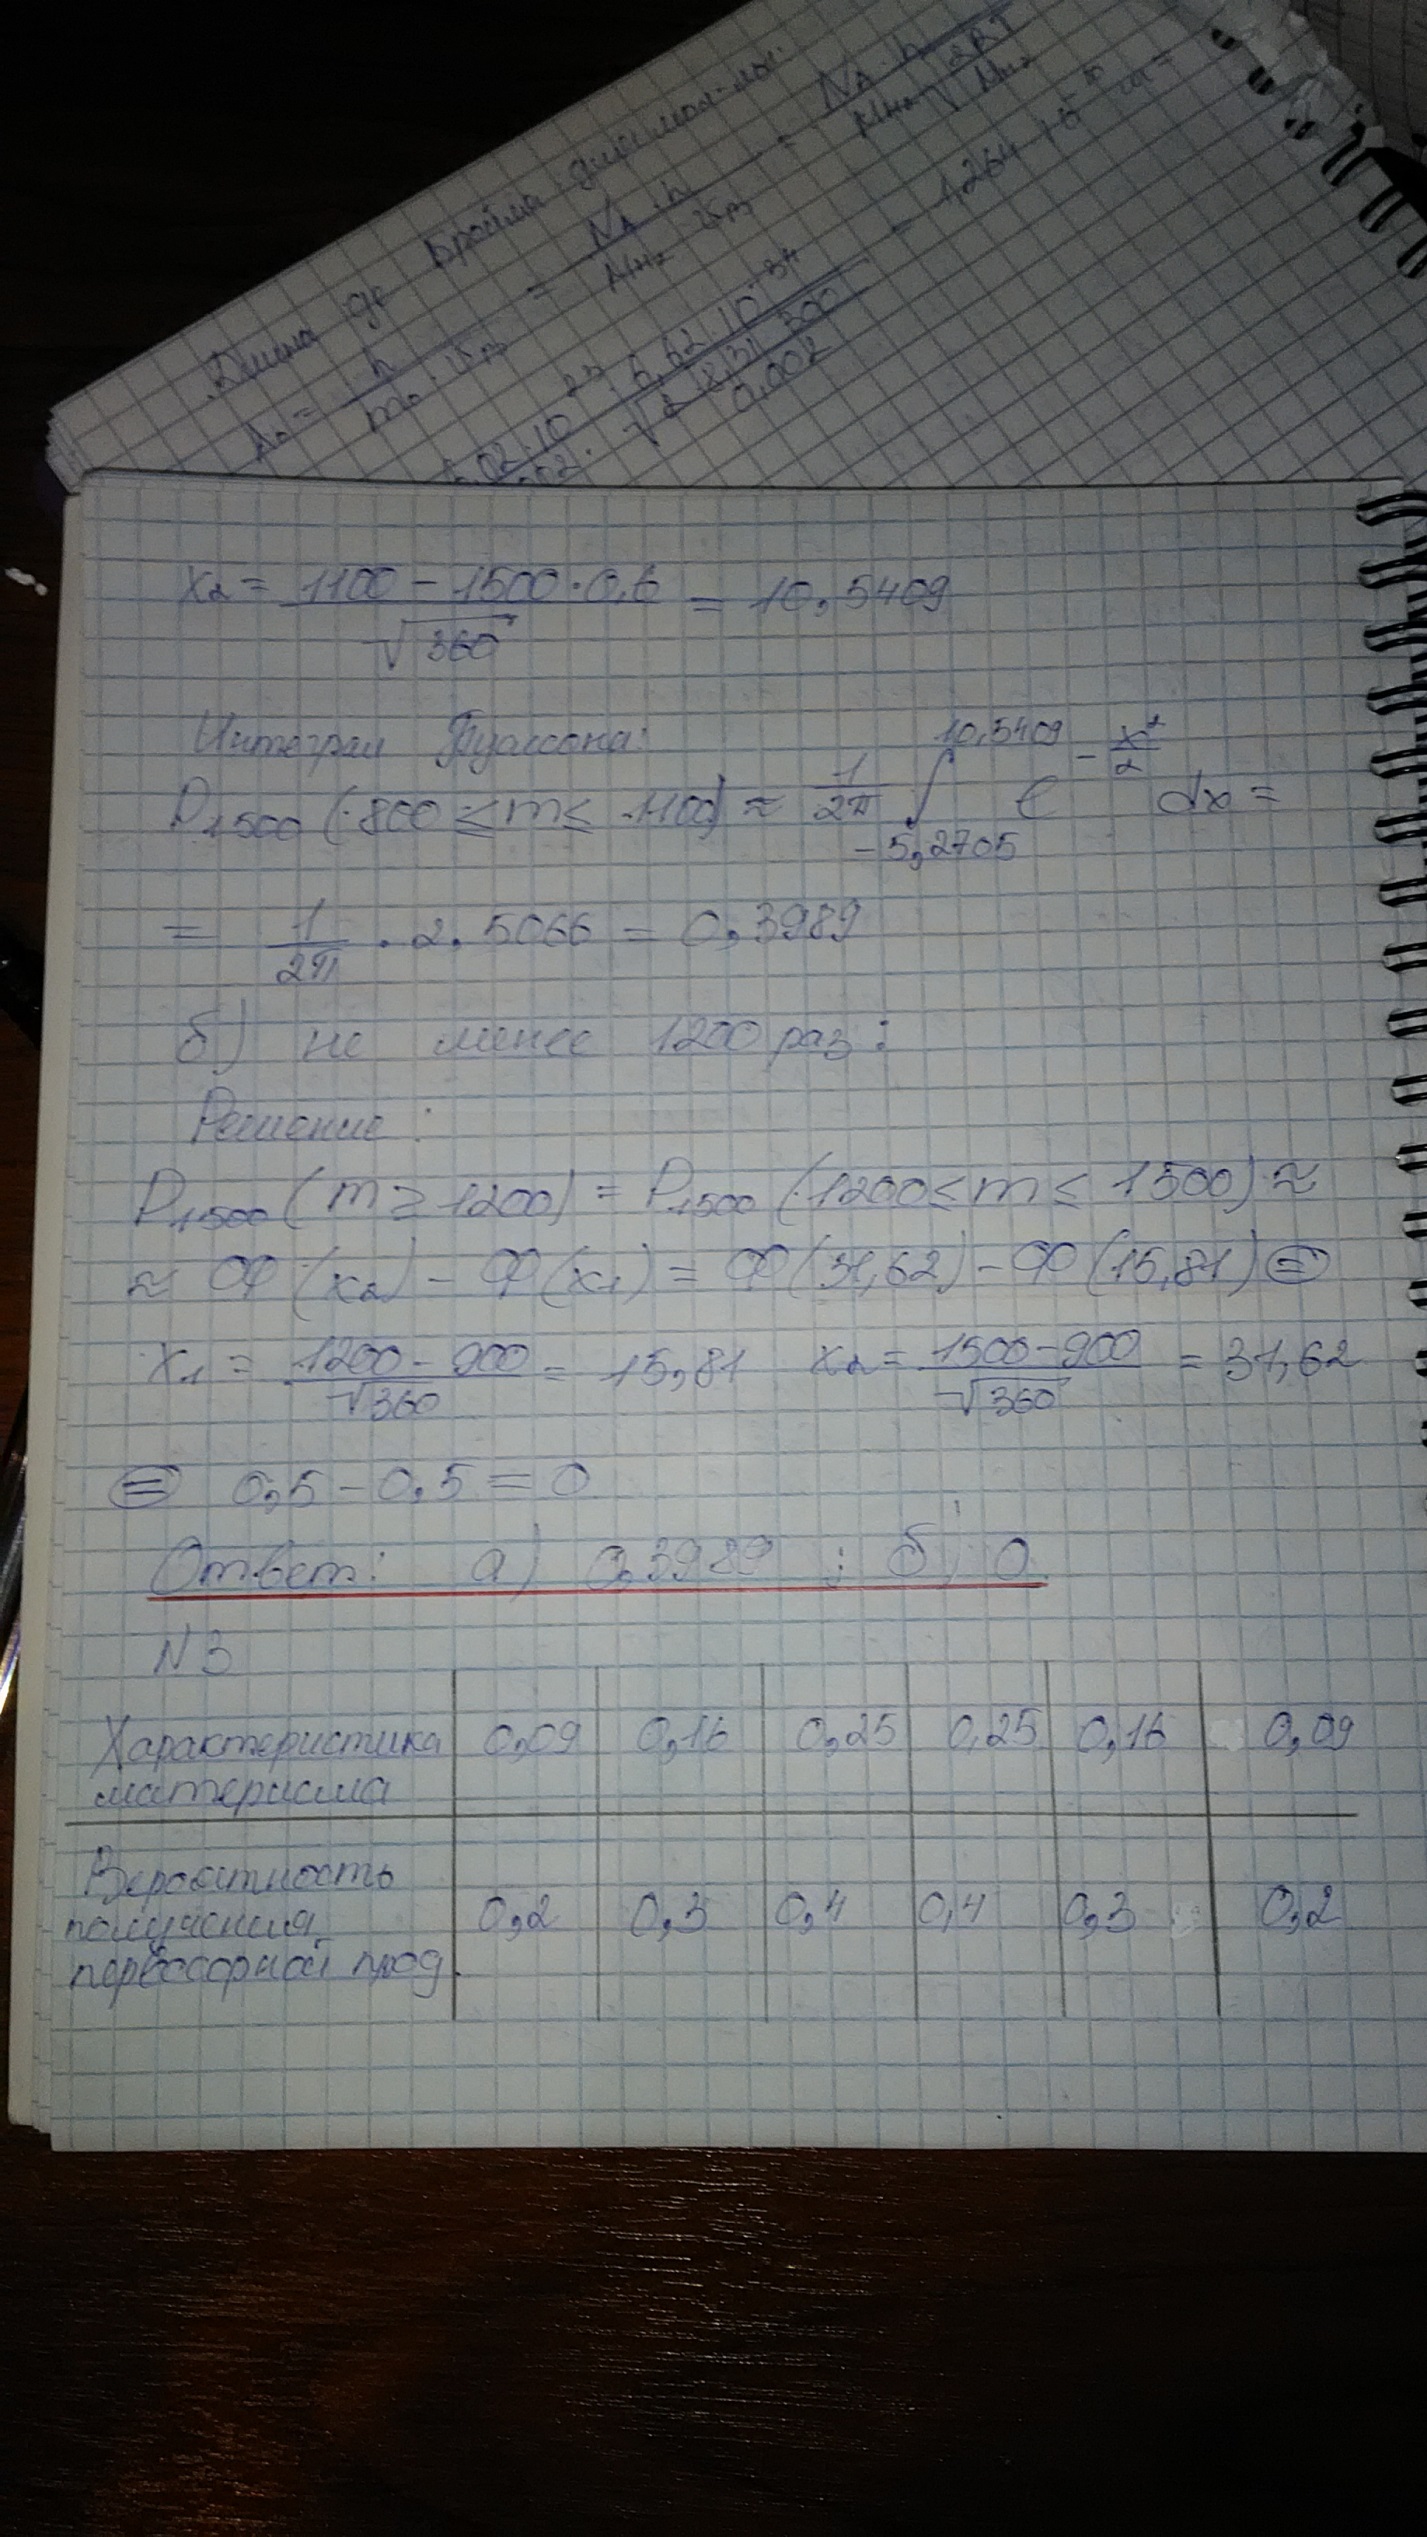 Длина де Бройля для мол-лы:
λ₀ = h / m₀ · v = N_A · h / M_H₂ · v = N_A · h / M_H₂ √ 2RT / M_H₂
02·10²³ · 6,62·10⁻³⁴ / √ 2 · 8,31 · 300 / 0,002 = 1,264
x₂ = 1100 − 1500·0,6 / √360 = 10,5409
Интеграл Пуассона:
P₁₅₀₀ (800 ≤ m ≤ 1100) ≈ 1/2π ∫₋₅,₂₇₀₅^10,5409 e^(−x²/2) dx =
= 1/2π · 2.5066 = 0,3989
б) не менее 1200 раз:
Решение:
P₁₅₀₀ (m ≥ 1200) = P₁₅₀₀ (1200 ≤ m ≤ 1500) ≈
≈ Ф (x₂) − Ф (x₁) = Ф (31,62) − Ф (15,81) ⊜
x₁ = 1200 − 900 / √360 = 15,81 x₂ = 1500 − 900 / √360 = 31,62
⊜ 0,5 − 0,5 = 0
Ответ: а) 0,3989 ; б) 0
N3
Характеристика материала 0,09 0,16 0,25 0,25 0,16 0,09
Вероятность получения первосорной прод. 0,2 0,3 0,4 0,4 0,3 0,2